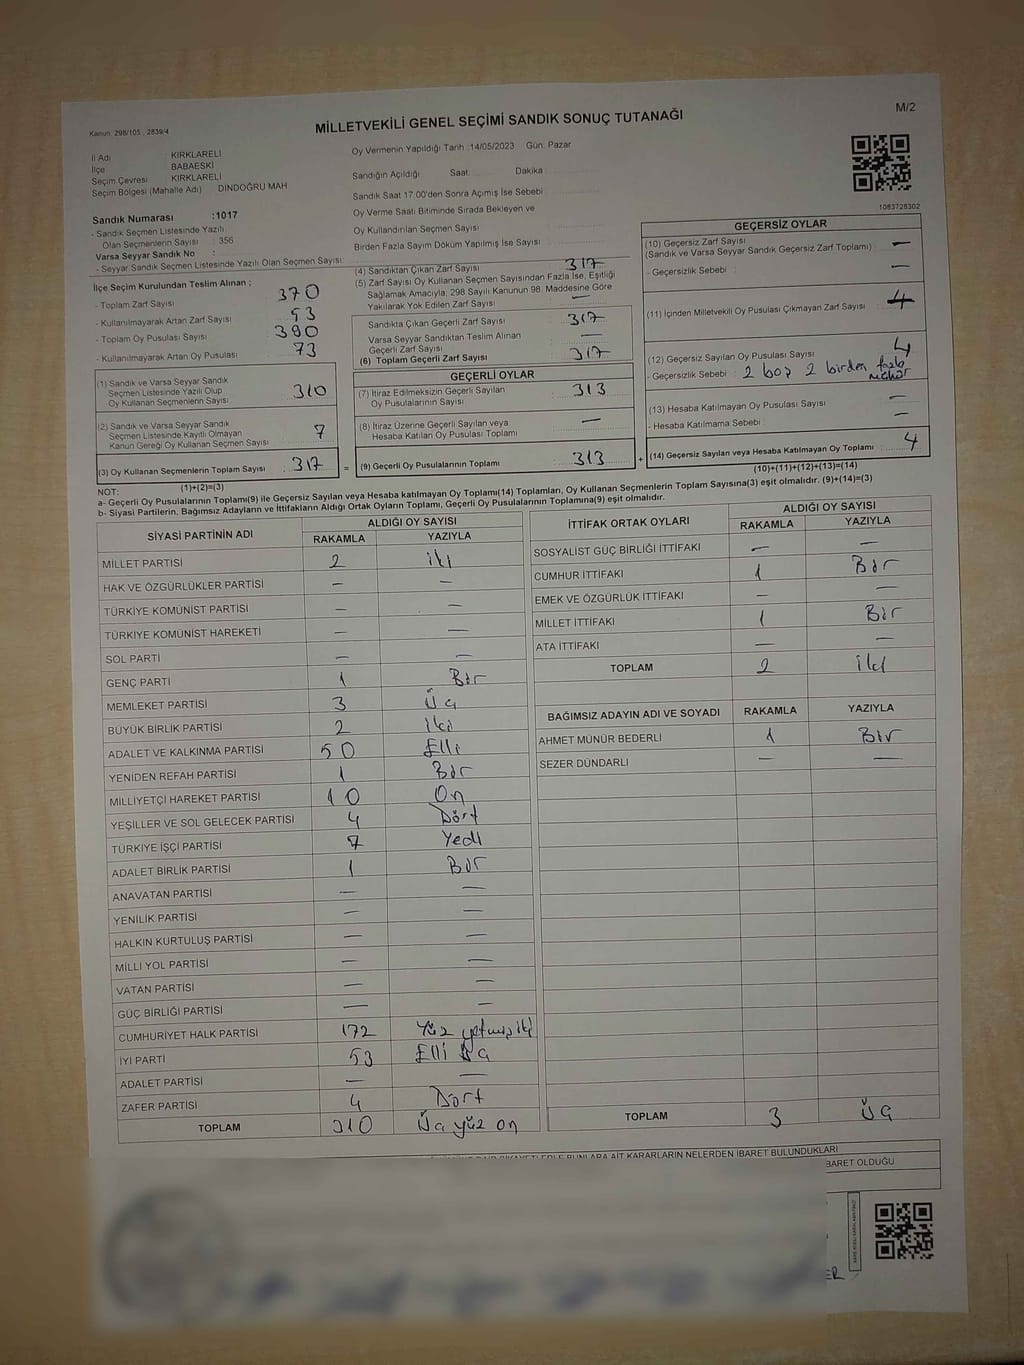 Kanun: 298/105 , 2839/4
M/2
MİLLETVEKİLİ GENEL SEÇİMİ SANDIK SONUÇ TUTANAĞI
İl Adı KIRKLARELİ
İlçe BABAESKİ
Seçim Çevresi KIRKLARELİ
Seçim Bölgesi (Mahalle Adı) DİNDOĞRU MAH
Sandık Numarası :1017
- Sandık Seçmen Listesinde Yazılı
Olan Seçmenlerin Sayısı : 356
Varsa Seyyar Sandık No :
- Seyyar Sandık Seçmen Listesinde Yazılı Olan Seçmen Sayısı:
Oy Vermenin Yapıldığı Tarih :14/05/2023 Gün: Pazar
Sandığın Açıldığı Saat Dakika
Sandık Saat 17:00'den Sonra Açımış İse Sebebi
Oy Verme Saati Bitiminde Sırada Bekleyen ve
Oy Kullandırılan Seçmen Sayısı
Birden Fazla Sayım Döküm Yapılmış İse Sayısı
1083728302
İlçe Seçim Kurulundan Teslim Alınan ;
- Toplam Zarf Sayısı 370
- Kullanılmayarak Artan Zarf Sayısı 53
- Toplam Oy Pusulası Sayısı 390
- Kullanılmayarak Artan Oy Pusulası 73
(1) Sandık ve Varsa Seyyar Sandık
Seçmen Listesinde Yazılı Olup
Oy Kullanan Seçmenlerin Sayısı 310
(2) Sandık ve Varsa Seyyar Sandık
Seçmen Listesinde Kayıtlı Olmayan
Kanun Gereği Oy Kullanan Seçmen Sayısı 7
(3) Oy Kullanan Seçmenlerin Toplam Sayısı 317
(1)+(2)=(3)
(4) Sandıktan Çıkan Zarf Sayısı 317
(5) Zarf Sayısı Oy Kullanan Seçmen Sayısından Fazla İse, Eşitliği
Sağlamak Amacıyla; 298 Sayılı Kanunun 98. Maddesine Göre
Yakılarak Yok Edilen Zarf Sayısı —
Sandıkta Çıkan Geçerli Zarf Sayısı 317
Varsa Seyyar Sandıktan Teslim Alınan
Geçerli Zarf Sayısı —
(6) Toplam Geçerli Zarf Sayısı 317
GEÇERLİ OYLAR
(7) İtiraz Edilmeksizin Geçerli Sayılan
Oy Pusulalarının Sayısı 313
(8) İtiraz Üzerine Geçerli Sayılan veya
Hesaba Katılan Oy Pusulası Toplamı —
= (9) Geçerli Oy Pusulalarının Toplamı 313 +
GEÇERSİZ OYLAR
(10) Geçersiz Zarf Sayısı —
(Sandık ve Varsa Seyyar Sandık Geçersiz Zarf Toplamı)
- Geçersizlik Sebebi : —
(11) İçinden Milletvekili Oy Pusulası Çıkmayan Zarf Sayısı
(12) Geçersiz Sayılan Oy Pusulası Sayısı 4
- Geçersizlik Sebebi : 2 boş 2 birden fazla mühür
(13) Hesaba Katılmayan Oy Pusulası Sayısı —
- Hesaba Katılmama Sebebi —
(14) Geçersiz Sayılan veya Hesaba Katılmayan Oy Toplamı 4
(10)+(11)+(12)+(13)=(14)
NOT:
a- Geçerli Oy Pusulalarının Toplamı(9) ile Geçersiz Sayılan veya Hesaba katılmayan Oy Toplamı(14) Toplamları, Oy Kullanan Seçmenlerin Toplam Sayısına(3) eşit olmalıdır. (9)+(14)=(3)
b- Siyasi Partilerin, Bağımsız Adayların ve İttifakların Aldığı Ortak Oyların Toplamı, Geçerli Oy Pusulalarının Toplamına(9) eşit olmalıdır.
SİYASİ PARTİNİN ADI ALDIĞI OY SAYISI
RAKAMLA YAZIYLA
MİLLET PARTİSİ 2 iki
HAK VE ÖZGÜRLÜKLER PARTİSİ — —
TÜRKİYE KOMÜNİST PARTİSİ — —
TÜRKİYE KOMÜNİST HAREKETİ — —
SOL PARTİ — —
GENÇ PARTİ 1 Bir
MEMLEKET PARTİSİ 3 Üç
BÜYÜK BİRLİK PARTİSİ 2 iki
ADALET VE KALKINMA PARTİSİ 50 Elli
YENİDEN REFAH PARTİSİ 1 Bir
MİLLİYETÇİ HAREKET PARTİSİ 10 On
YEŞİLLER VE SOL GELECEK PARTİSİ 4 Dört
TÜRKİYE İŞÇİ PARTİSİ 7 Yedi
ADALET BİRLİK PARTİSİ 1 Bir
ANAVATAN PARTİSİ — —
YENİLİK PARTİSİ — —
HALKIN KURTULUŞ PARTİSİ — —
MİLLİ YOL PARTİSİ — —
VATAN PARTİSİ — —
GÜÇ BİRLİĞİ PARTİSİ — —
CUMHURİYET HALK PARTİSİ 172 Yüz yetmiş iki
İYİ PARTİ 53 Elli üç
ADALET PARTİSİ — —
ZAFER PARTİSİ 4 Dört
TOPLAM 310 Üç yüz on
İTTİFAK ORTAK OYLARI ALDIĞI OY SAYISI
RAKAMLA YAZIYLA
SOSYALİST GÜÇ BİRLİĞİ İTTİFAKI — —
CUMHUR İTTİFAKI 1 Bir
EMEK VE ÖZGÜRLÜK İTTİFAKI — —
MİLLET İTTİFAKI 1 Bir
ATA İTTİFAKI — —
TOPLAM 2 iki
BAĞIMSIZ ADAYIN ADI VE SOYADI RAKAMLA YAZIYLA
AHMET MÜNÜR BEDERLİ 1 Bir
SEZER DÜNDARLI — —
TOPLAM 3 Üç
KARARLARIN NELERDEN İBARET BULUNDUKLARI
BARET OLDUĞU
ER